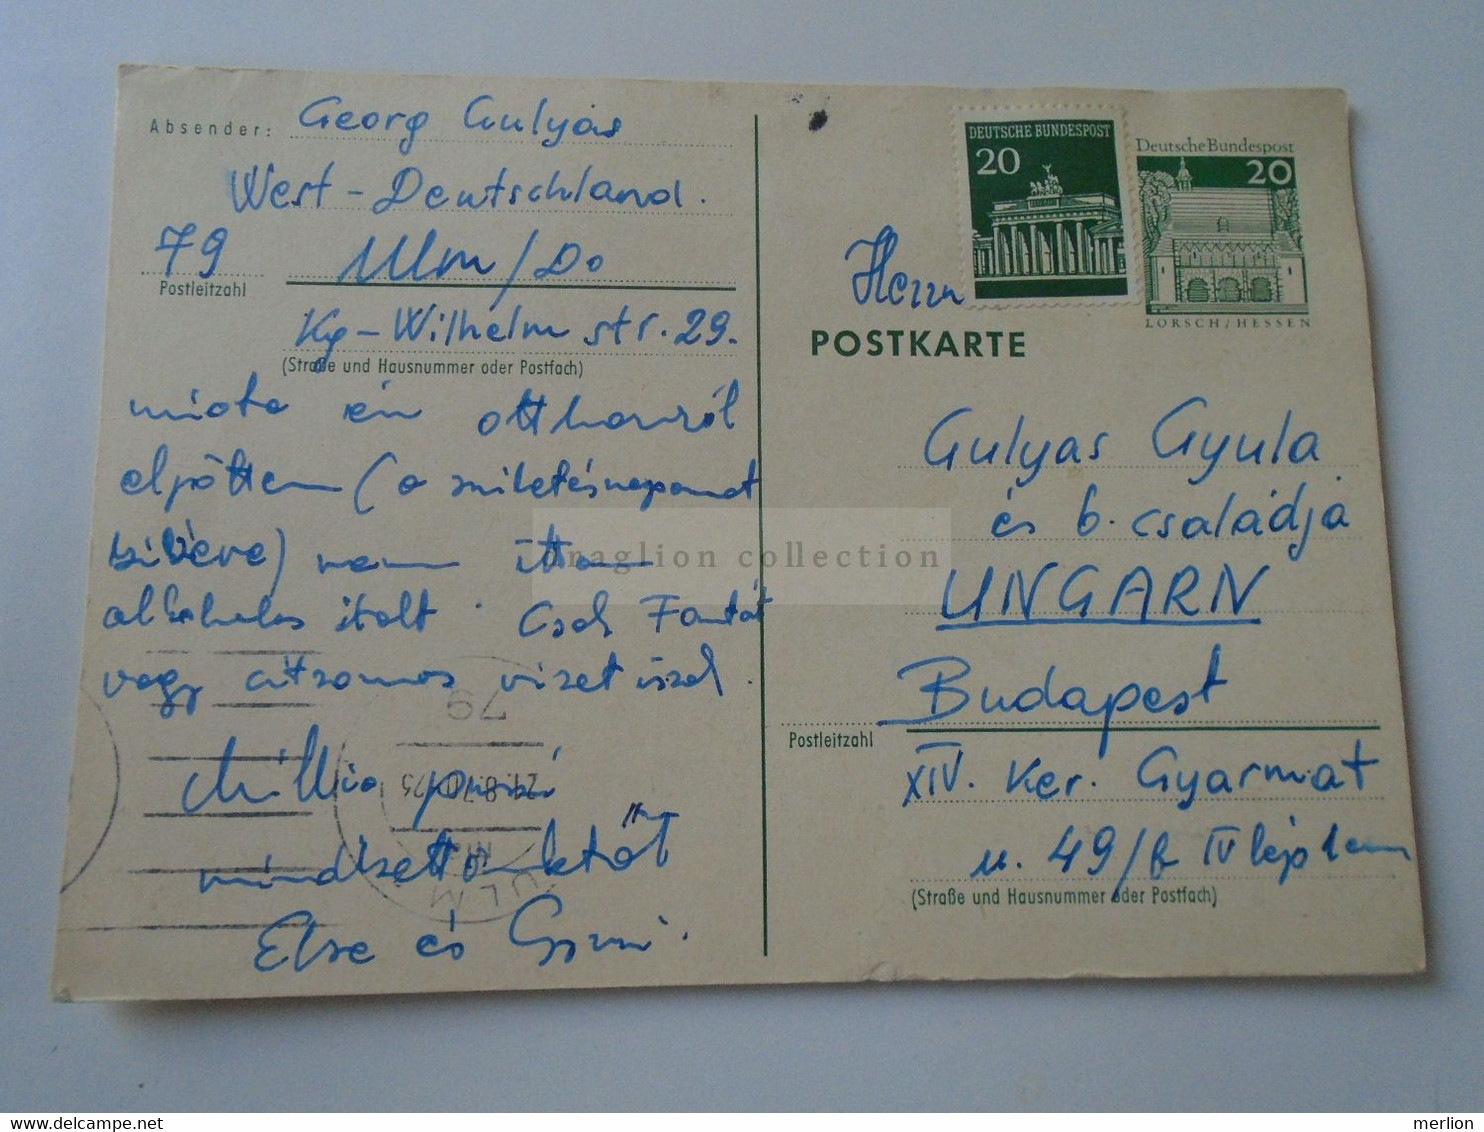 Absender: Georg Gulyás
West-Deutschland.
79 Ulm/Do
Postleitzahl
Kg-Wilhelm str. 29.
(Straße und Hausnummer oder Postfach)
mióta én otthonról
eljöttem (a születésnapomat
kivéve) nem ittam
alkoholos italt. Csak Fantát
vagy citromos vizet iszok.
Millió puszi
mindkettőnktől
Else és Gyuri.
79
21.8.70
ULM
DEUTSCHE BUNDESPOST
20
Deutsche Bundespost
20
LORSCH/HESSEN
Herrn
POSTKARTE
Gulyas Gyula
és b. családja
UNGARN
Budapest
Postleitzahl
XIV. Ker. Gyarmat
u. 49/b IV
(Straße und Hausnummer oder Postfach)
collection
merlion